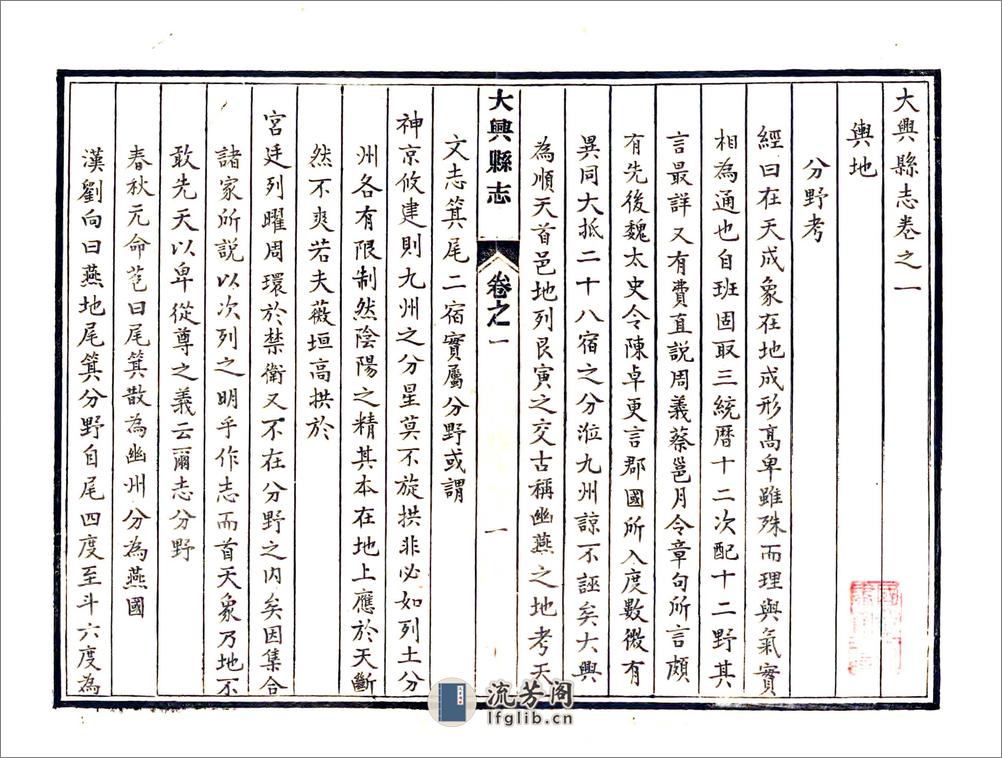 大興縣志卷之一
輿地
分野考
經曰在天成象在地成形高卑雖殊而理與氣實
相為通也自班固取三統曆十二次配十二野其
言最詳又有費直説周義蔡邕月令章句所言頗
有先後魏太史令陳卓更言郡國所入度數微有
異同大抵二十八宿之分涖九州諒不誣矣大興
為順天首邑地列艮寅之交古稱幽燕之地考天
大興縣志
卷之一
一
文志箕尾二宿實屬分野或謂
神京攸建則九州之分星莫不旋拱非必如列土分
州各有限制然陰陽之精其本在地上應於天斷
然不爽若夫薇垣高拱於
宮廷列曜周環於禁衛又不在分野之内矣因集合
諸家所説以次列之明乎作志而首天象乃地不
敢先天以卑從尊之義云爾志分野
春秋元命苞曰尾箕散為幽州分為燕國
漢劉向曰燕地尾箕分野自尾四度至斗六度為
流芳阁
lfglib.cn